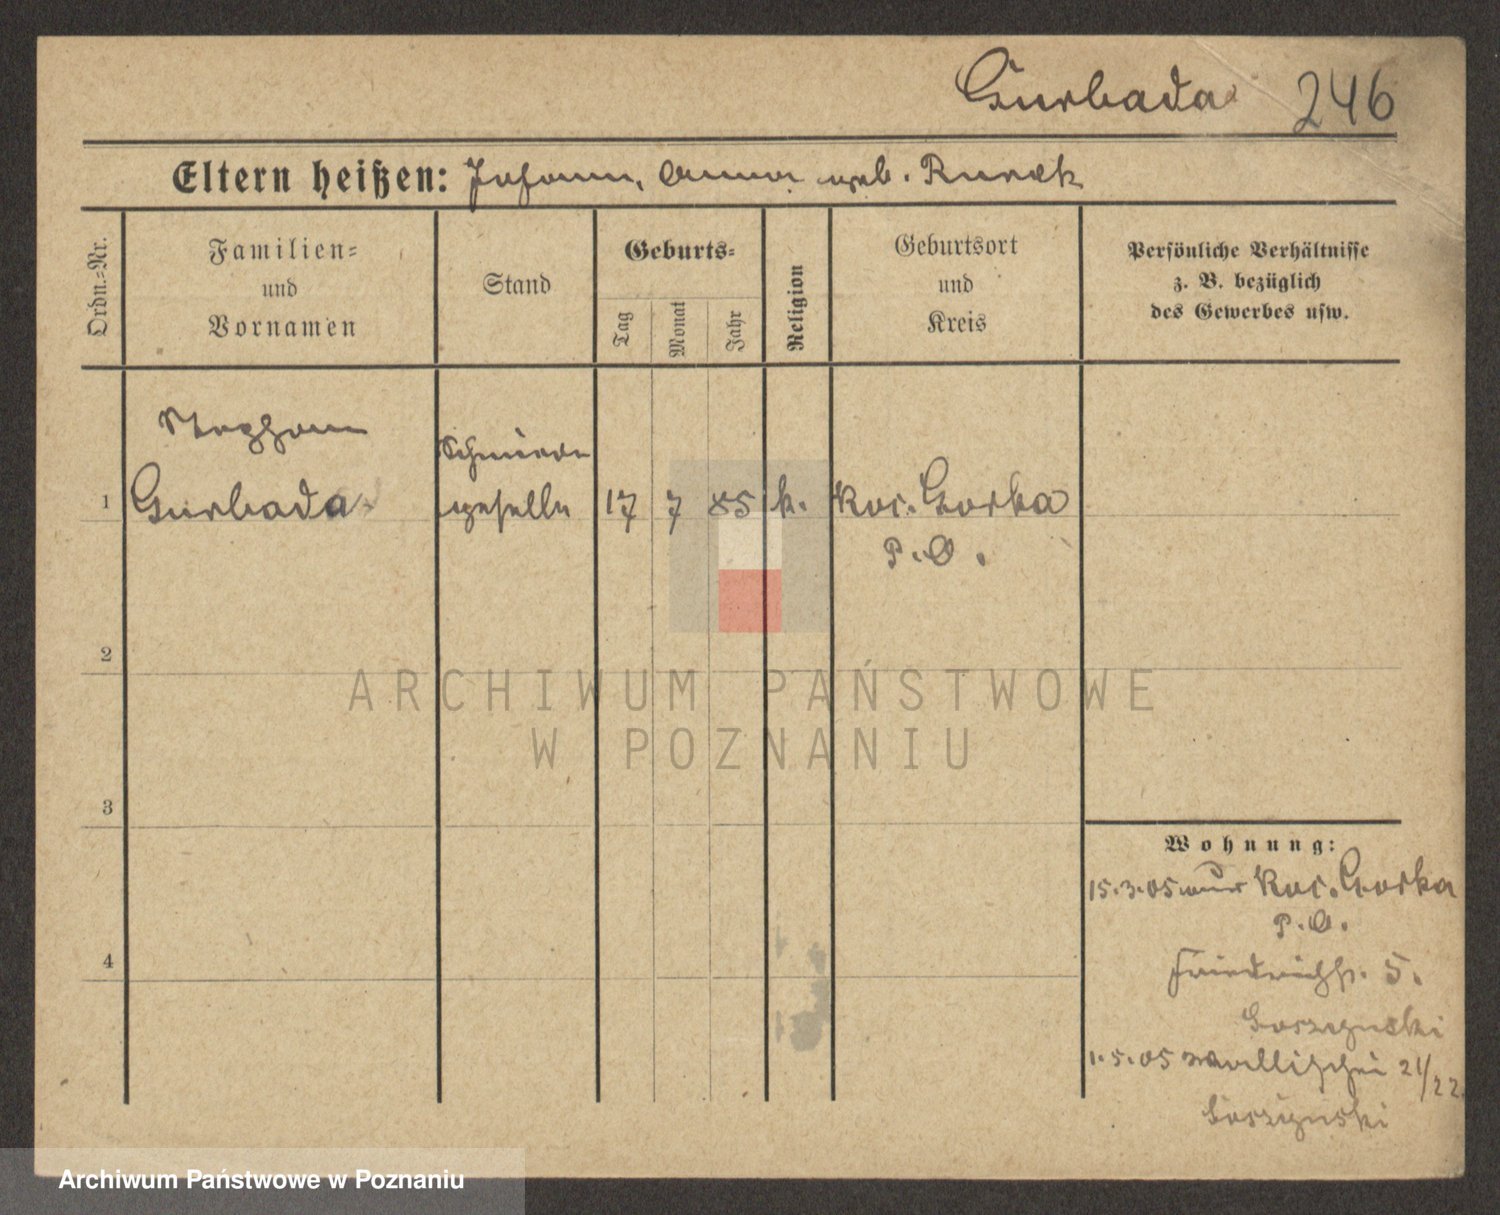 Gurbada 246
Eltern heißen: Johann, Anna geb. Kurek
Ordn.=Nr.
Familien=
und
Vornamen
Stand
Geburts=
Tag
Monat
Jahr
Religion
Geburtsort
und
Kreis
Persönliche Verhältnisse
z. B. bezüglich
des Gewerbes usw.
Stephan
1 Gurbada geselle 17 7 85 k. Kor. Gorka
P. O.
2
3
4
ARCHIWUM PAŃSTWOWE
W POZNANIU
Wohnung:
15.3.05 Kor. Gorka
P. O.
Friedrichstr. 5.
1.5.05 Wallischei 21/22.
Archiwum Państwowe w Poznaniu